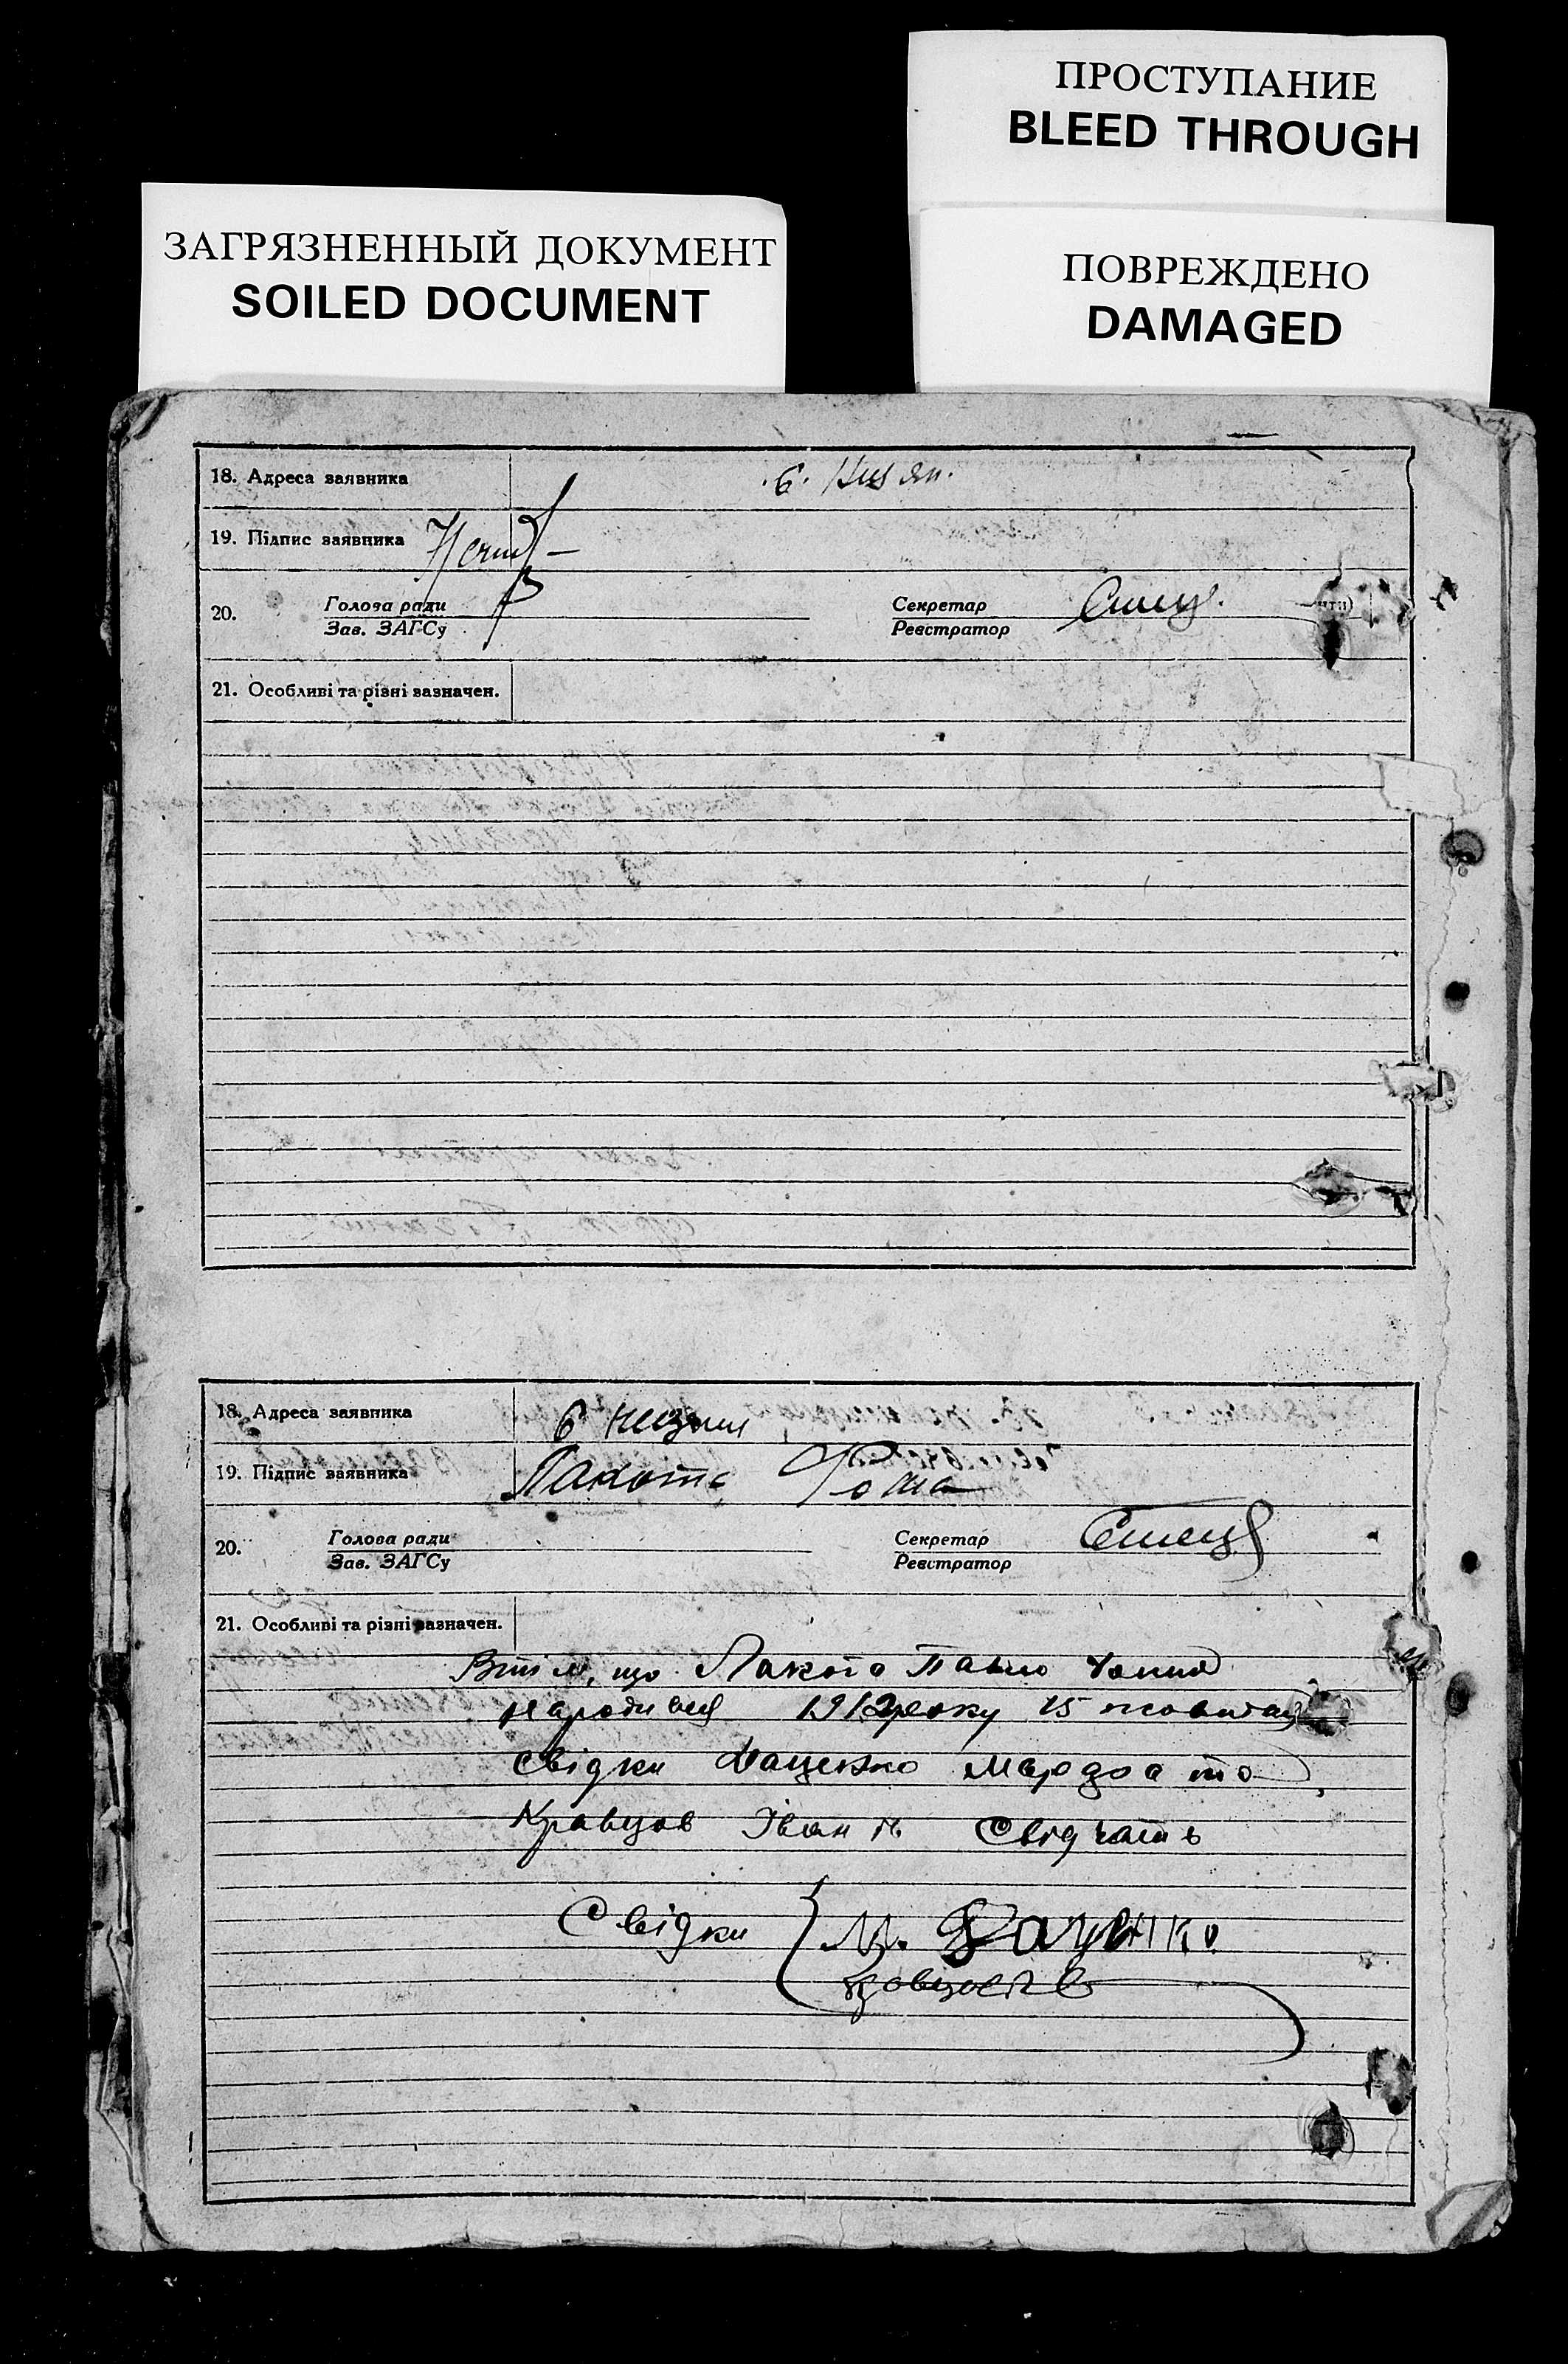 ПРОСТУПАНИЕ
BLEED THROUGH
ЗАГРЯЗНЕННЫЙ ДОКУМЕНТ
SOILED DOCUMENT
ПОВРЕЖДЕНО
DAMAGED
18. Адреса заявника
19. Підпис заявника
20. Голова ради
Зав. ЗАГСу
Секретар
Реєстратор
21. Особливі та різні зазначен.
18. Адреса заявника
19. Підпис заявника Лакота Фома
20. Голова ради
Зав. ЗАГСу
Секретар
Реєстратор
21. Особливі та різні зазначен.
В тім, що Лакота Павло
народився 1912 року 15 жовтня
свідки Даценко та
Кравцов Іван свідчать
Свідки М. Даценко